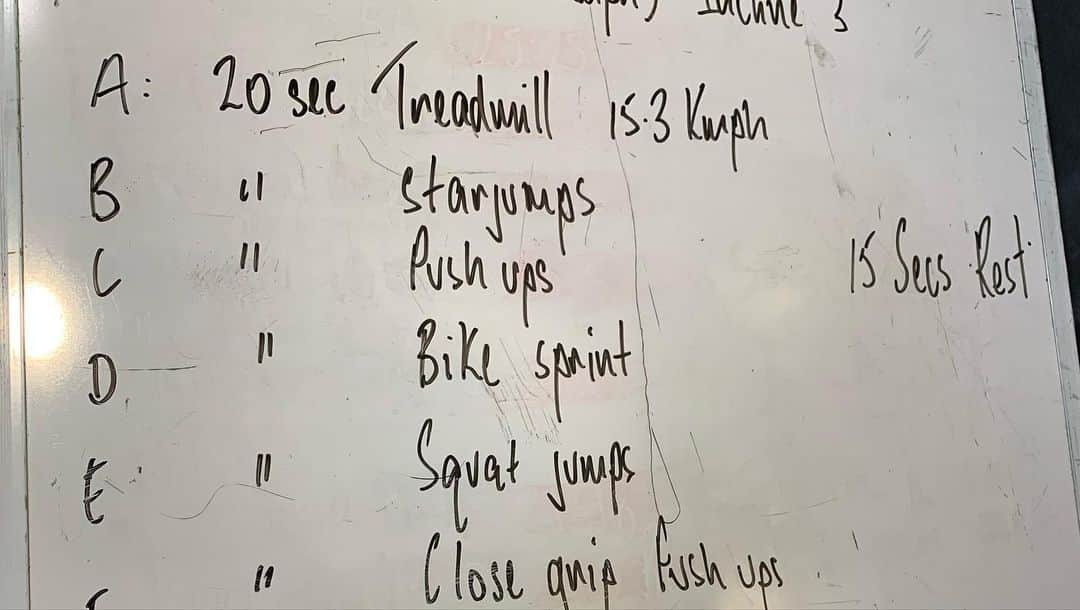 Incline 3
A: 20 sec Treadmill 15.3 Kmph
B " starjumps
C " Push ups
15 Secs Rest
D " Bike sprint
E " Squat jumps
" Close grip Push ups